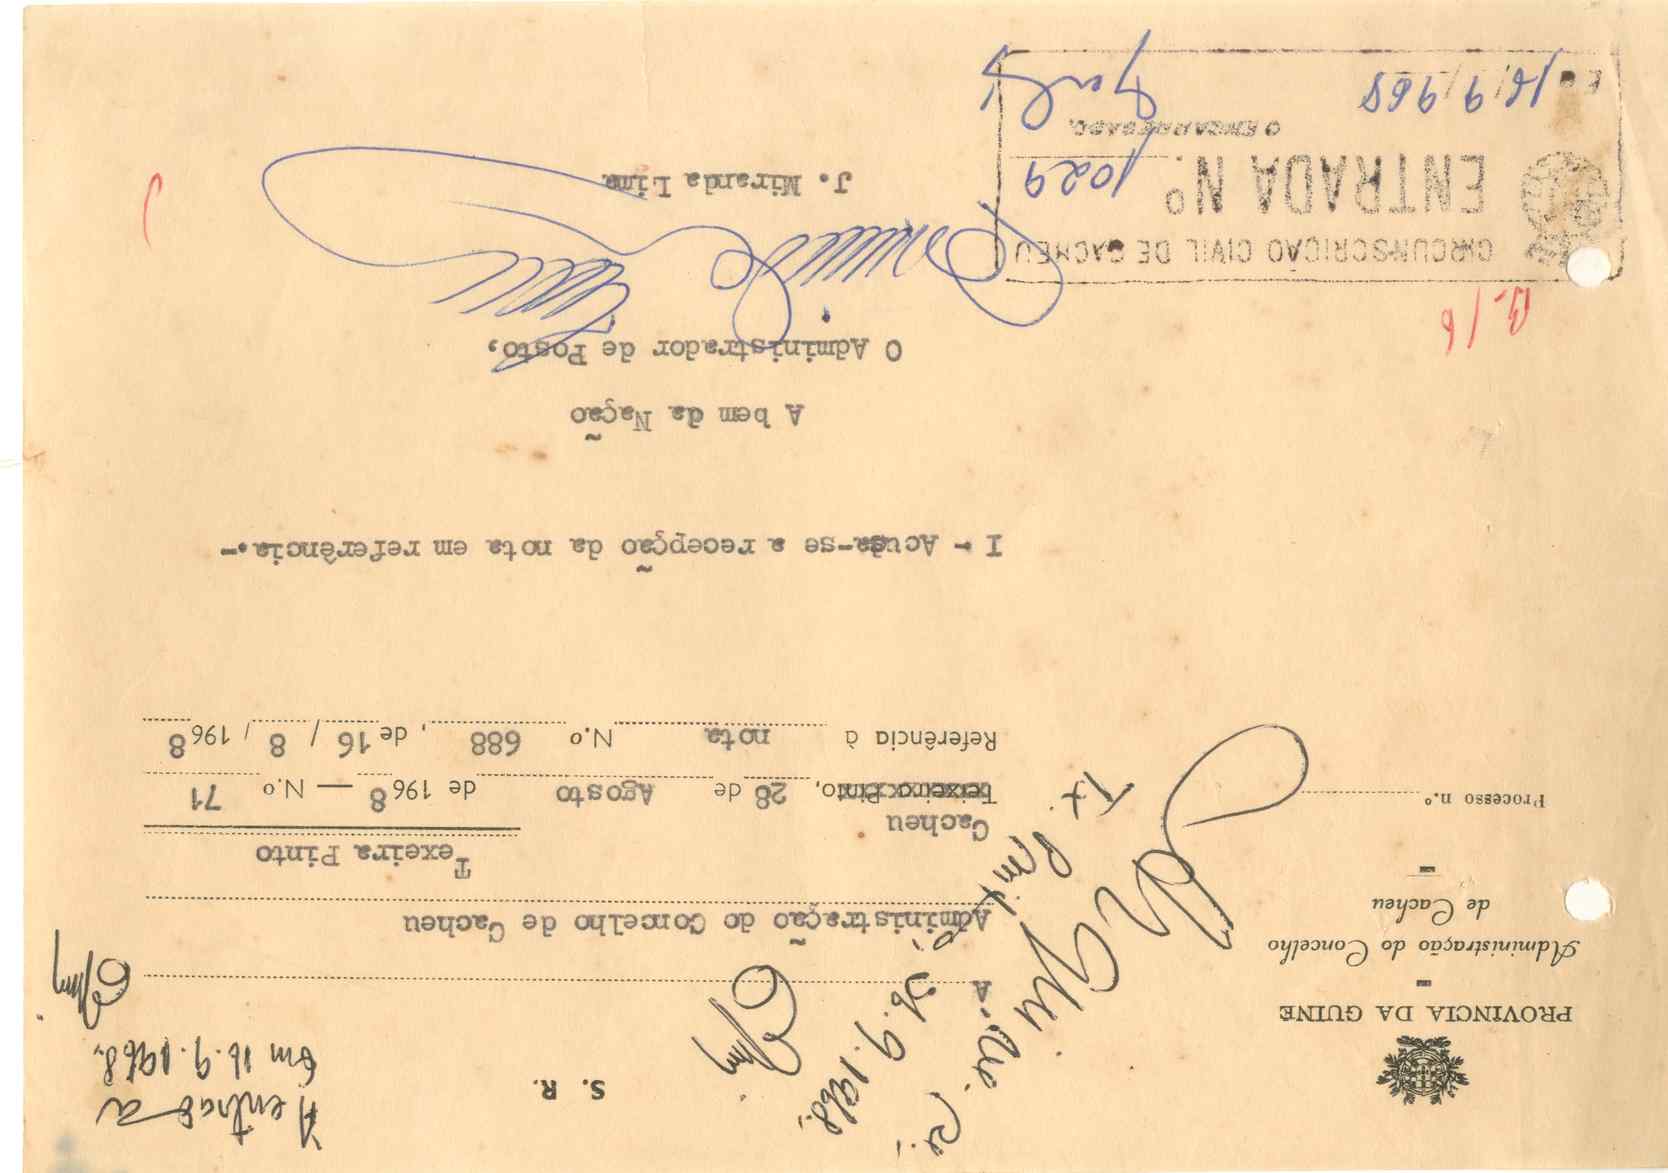 S. R.
A entrada
Em 16.9.1968.
PROVINCIA DA GUINE
Administração do Concelho
de Cacheu
Processo n.º
Arquive-se.
Tx. Pinto, 16.9.1968.
A
Administração do Concelho de Cacheu
Texeira Pinto
Cacheu
Teixeira Pinto, 28 de Agosto de 1968 — N.º 71
Referência à nota N.º 688, de 16 / 8 / 1968
I - Acusa-se a recepção da nota em referência.-
A bem da Nação
O Administrador de Posto,
J. Miranda Lima
B-1/6
CIRCUNSCRIÇÃO CIVIL DE CACHEU
ENTRADA Nº 1029
O ENCARREGADO,
Em 16/9/968